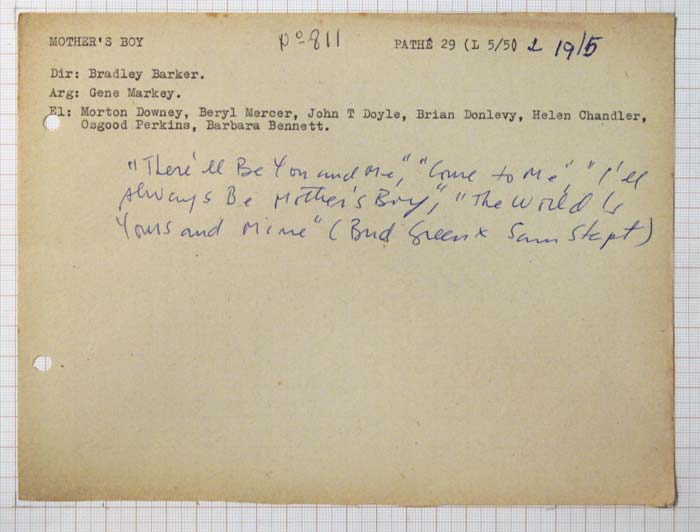 MOTHER'S BOY pº-811 PATHÉ 29 (L 5/5) L 19/5
Dir: Bradley Barker.
Arg: Gene Markey.
El: Morton Downey, Beryl Mercer, John T Doyle, Brian Donlevy, Helen Chandler,
Osgood Perkins, Barbara Bennett.
"There'll Be You and Me," "Come to Me," "I'll
Always Be Mother's Boy", "The World Is
Yours and Mine" (Bud Green x Sam Stept)